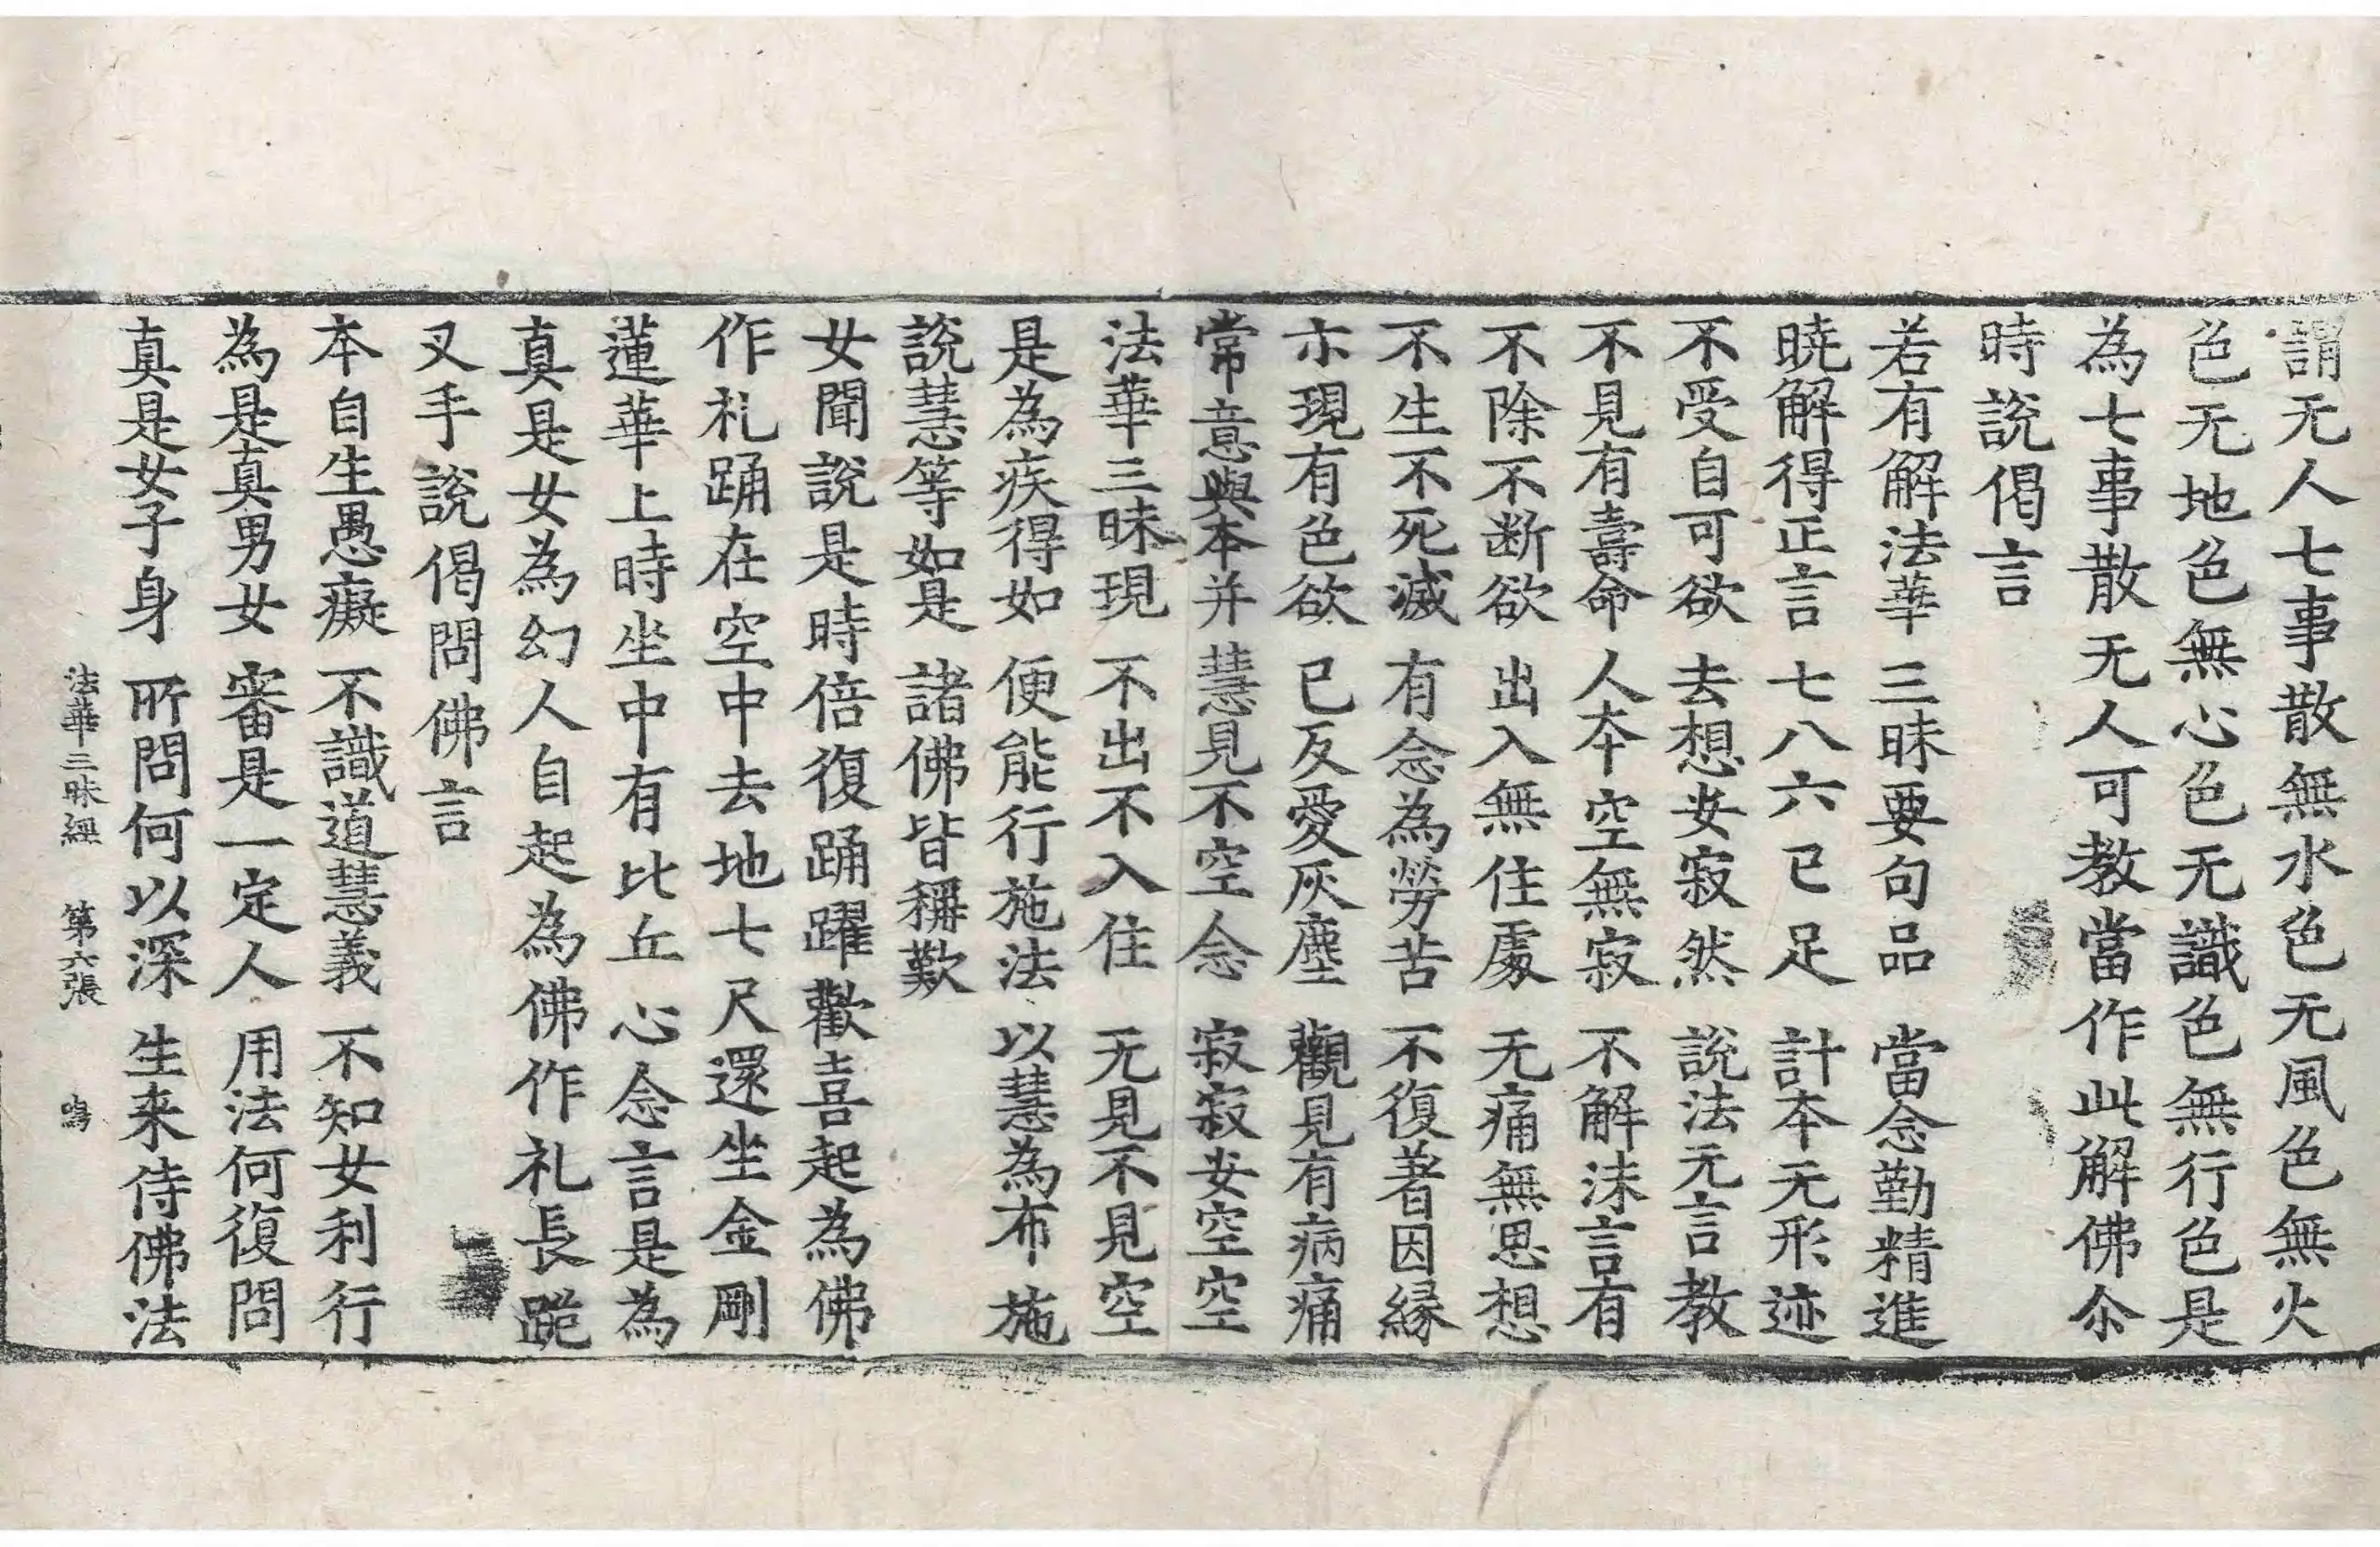 謂无人七事散無水色无風色無火
色无地色無心色无識色無行色是
為七事散无人可教當作此解佛尒
時說偈言
若有解法華　三昧要句品　當念勤精進
暁解得正言　七八六已足　計本无形迹
不受自可欲　去想安寂然　說法无言教
不見有壽命　人本空無寂　不解法言有
不除不断欲　出入無住處　无痛無思想
不生不死滅　有念為勞苦　不復著因縁
亦現有色欲　已反愛灰塵　觀見有病痛
常意與本并　慧見不空念　寂寂安空空
法華三昧現　不出不入住　无見不見空
是為疾得如　便能行施法　以慧為布施
說慧等如是　諸佛皆稱歎
女聞說是時倍復踊躍歡喜起為佛
作礼踊在空中去地七尺還坐金剛
蓮華上時坐中有比丘心念言是為
真是女為幻人自起為佛作礼長跪
叉手說偈問佛言
本自生愚癡　不識道慧義　不知女利行
為是真男女　審是一定人　用法何復問
真是女子身　所問何以深　生来侍佛法
法華三昧經　第六張　鳴